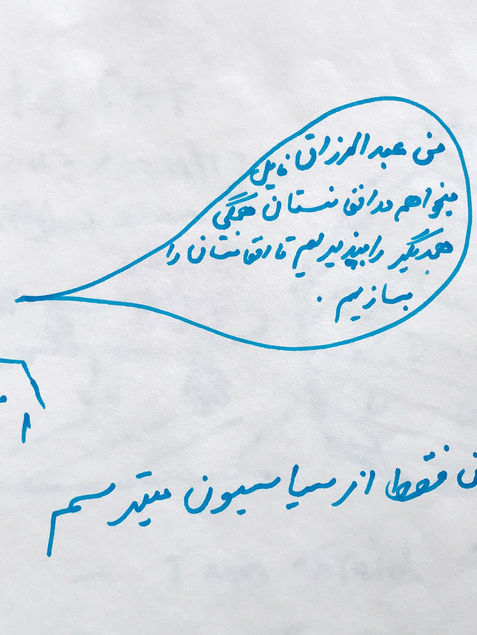 من عبدالرزاق مایل
میخواهم در افغانستان همگی
همدیگر را بپذیریم تا افغانستان را
بسازیم.
فقط از سیاسیون میترسم